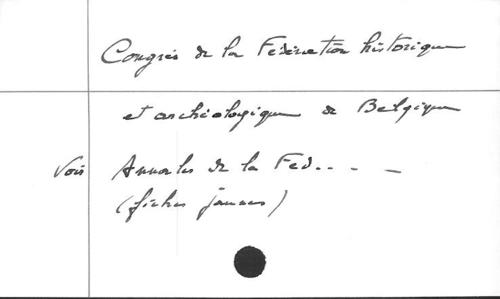 Congrès de la Fédération historique
et archéologique de Belgique
Voir Annales de la Féd. . . .
(fiches jaunes)